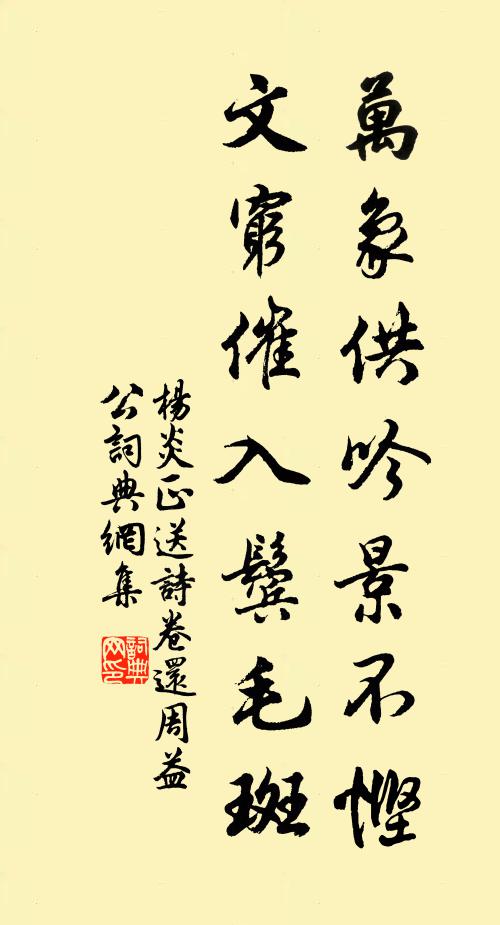 萬象供吟景不慳
文窮催入鬢毛斑
楊炎正送詩卷還周益
公詞典網集
詞典網印